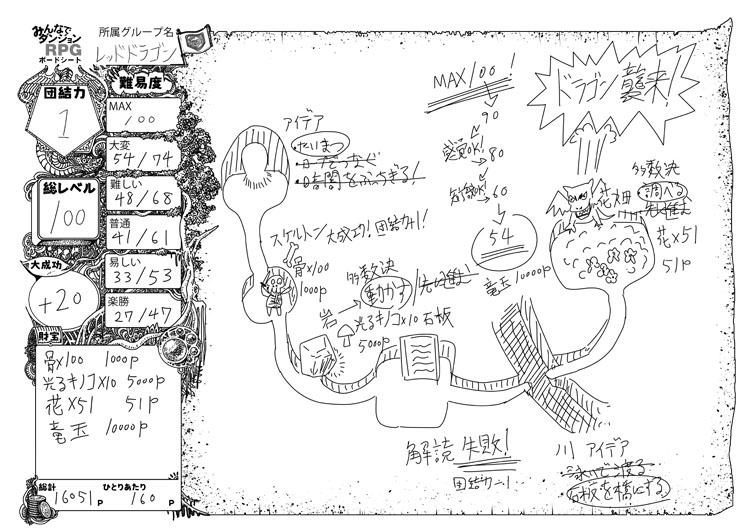 みんなで
ダンジョン
RPG
ボードシート
所属グループ名
レッドドラゴン
団結力
1
総レベル
100
大成功
+20
難易度
MAX
100
大変
54/74
難しい
48/68
普通
41/61
易しい
33/53
楽勝
27/47
財宝
骨×100 100P
光るキノコ×10 5000P
花×51 51P
竜玉 10000P
総計
16051P
ひとりあたり
160P
アイデア
・たいまつ
・手をつなぐ
・時間をぶちぎる!
スケルトン 大成功!団結力+1!
骨×100
100P
多数決
岩→動かす/先に進む
光るキノコ×10
5000P
石板
解読 失敗!
団結力-1!
MAX100!
90
愛OK!
80
60
54
竜玉 10000P
ドラゴン襲来!
花畑
多数決
調べる
先に進む
花×51
51P
川 アイデア
・泳いで渡る
・石板を橋にする